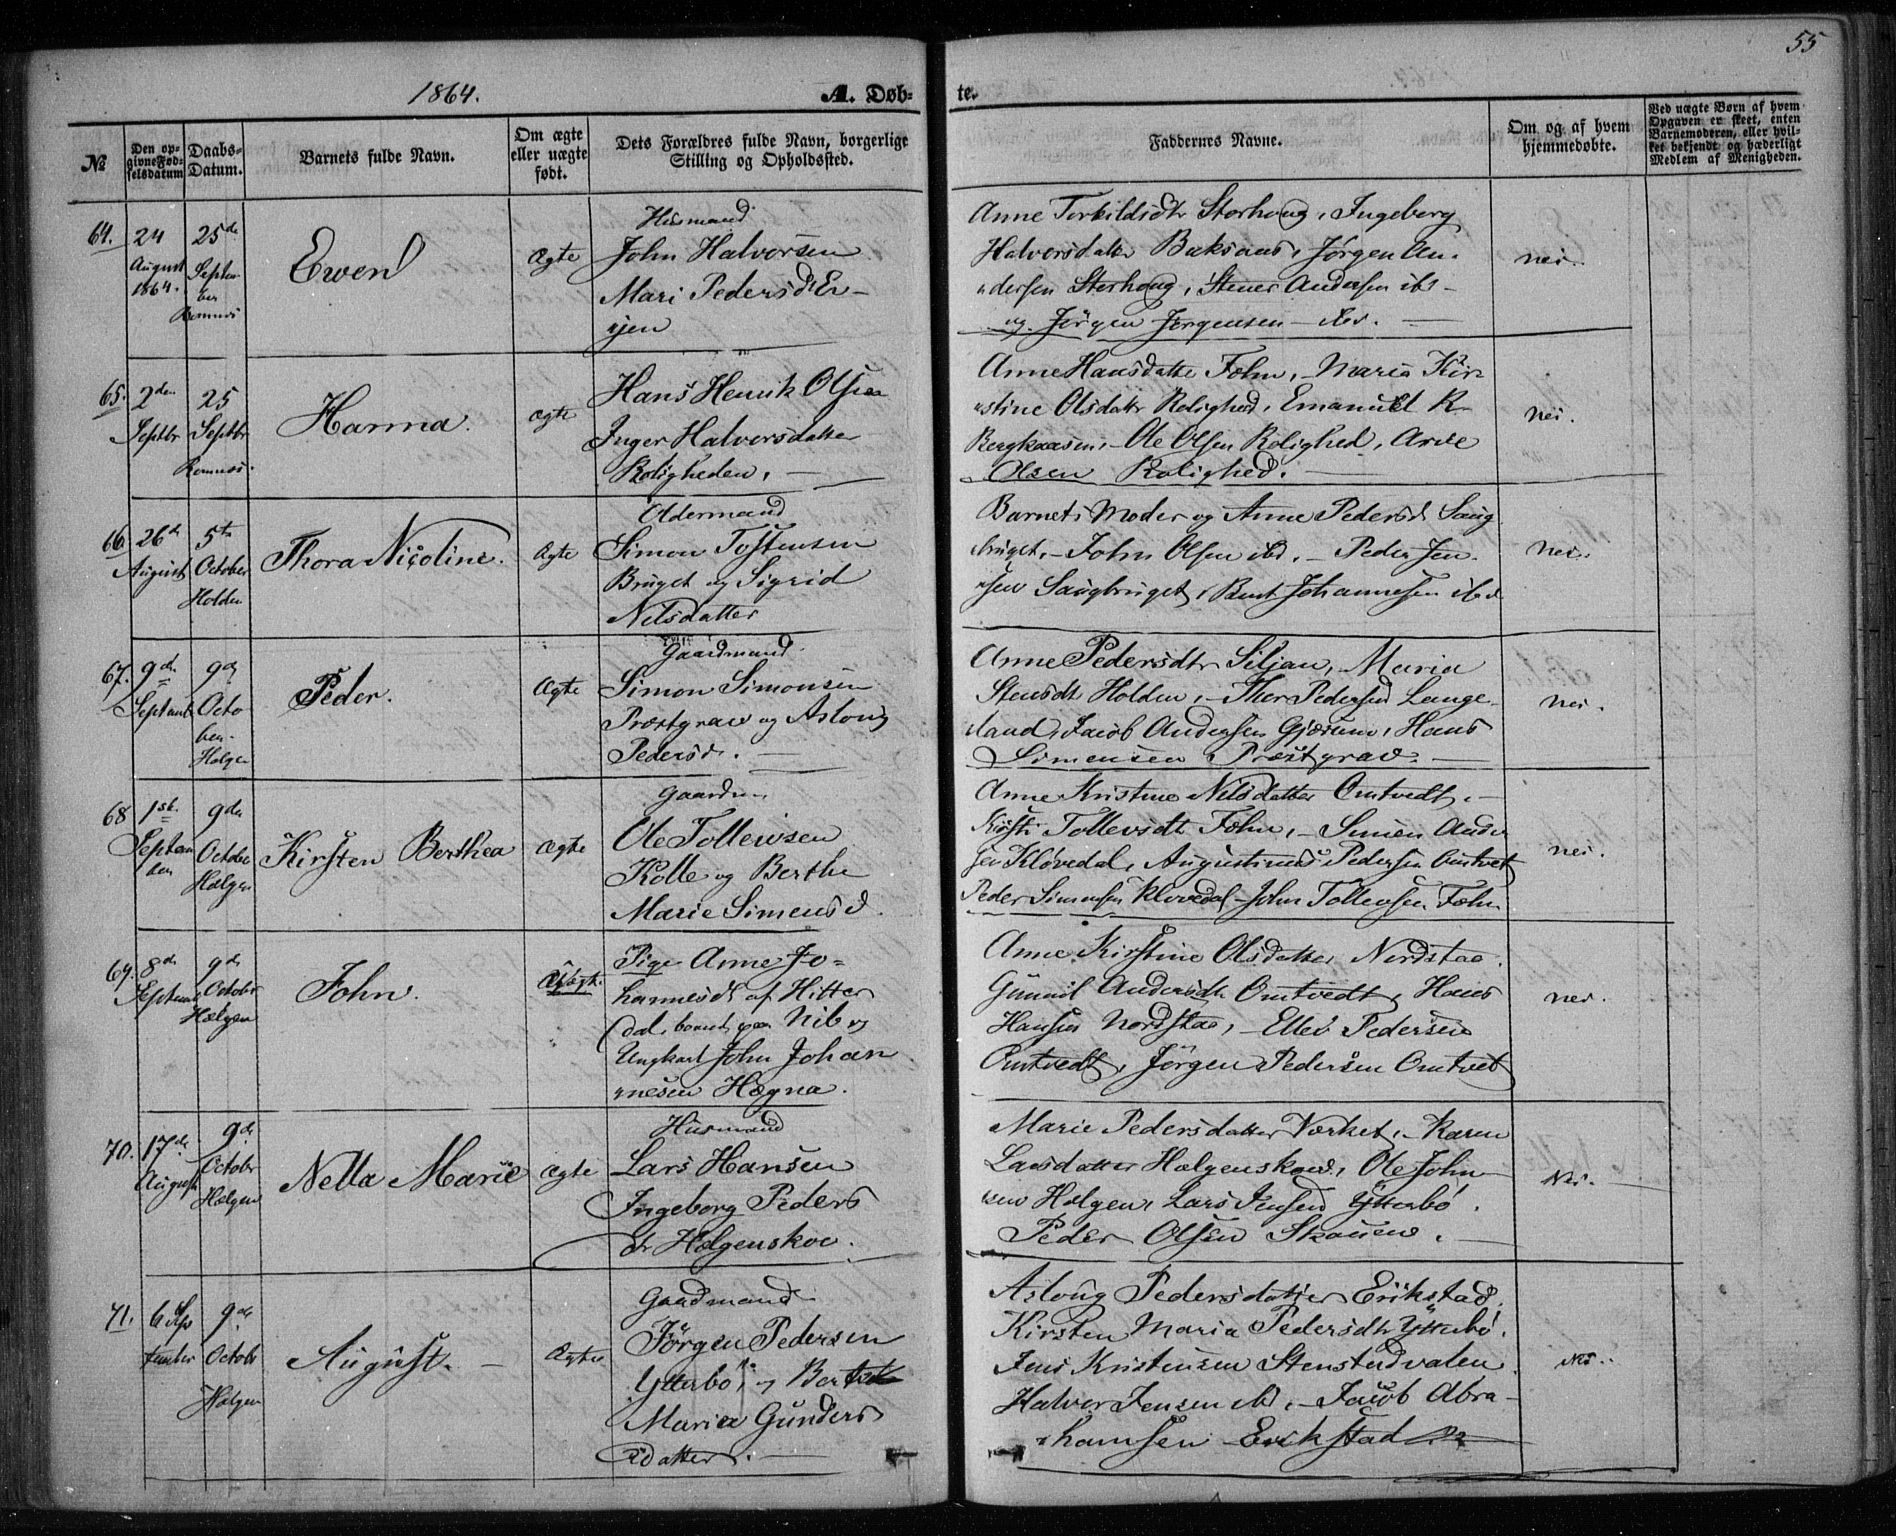 55
1864.
A. Døb-
te.
№
Den op-
givne Fød-
selsdatum
Daabs-
Datum.
Barnets fulde Navn.
Om ægte
eller uægte
født.
Dets Forældres fulde Navn, borgerlige
Stilling og Opholdssted.
Faddernes Navne.
Om og af hvem
hjemmedøbte.
Ved uægte Børn af hvem
Opgaven er skeet, enten
Barnemoderen, eller hvil-
ket bekjendt og hæderligt
Medlem af Menigheden.
64.
24
August
1864.
25de
Septem
ber
Romnes
Ewen
Ægte
Husmand
John Halvorsen
Mari Pedersd
Anne Torkildsdtr Storhoug, Ingeborg
Halvorsdatter Baksaas, Jørgen An-
dersen Storhoug, Stener Andersen ibd
og Jørgen Jørgensen ibd.
nei.
65.
2den
Septbr
25
Septbr
Romnes.
Hanna.
Ægte
Hans Henrik Olsen
Inger Halvorsdatter
Roligheden.
Anne Hansdatter Fæhn, Maria Kir-
stine Olsdatr Rolighed, Emanuel R
Bergkaasen, Ole Olsen Rolighed, Arve
Olsen Rolighed.
nei.
66.
26d
August
5te
October
Holden
Thora Nicoline.
Ægte
Oldermand
Simon Tostensen
Bruget og Sigrid
Nilsdatter
Barnets Moder og Anne Pedersd Saug
bruget, John Olsen ibd. Peder Jen-
sen Saugbruget, Bent Johannesen ibd
nei.
67.
9de
Septemb
9de
Octo
ber
Hælgen
Peder.
Ægte
Gaardmand.
Simon Simonsen
Præstgrav og Asloug
Pedersd.
Anne Pedersdtr Siljan, Maria
Stensdtr Holden, Thor Pedersen Lange-
land, Jacob Andersen Gjærum, Hans
Simensen Præstgrav.
nei.
68
1ste
Septem
ber
9de
October
Hælgen
Kirsten Berthea
Ægte
Gaardm.
Ole Tollevsen
Kolle og Berthe
Marie Simensd
Anne Kristine Nilsdatter Omtvedt.
Tollevsdtr Fæhn, Simen Ander
sen Kløvedal, Augustinus Pedersen Omtvet
Peder Simensen Kløvedal John Tollevsen Fæhn
nei.
69.
8de
Septemb
9de
October
Hælgen
John.
Uægte
Pige Anne Jo-
hannesdt af Hitter
dal, og
Ungkarl John Johan
nesen Hægna.
Anne Kirstine Olsdatter Nordstae.
Gunnil Andersdtr Omtvedt, Hans
Hansen Nordstae, Ellev Pedersen
Omtvedt, Jörgen Pedersen Omtvet
nei.
70.
17de
August
9de
Octobr
Hælgen
Nella Marie
Ægte
Husmand
Lars Hansen
Ingeborg Peders
dr Hælgenskov.
Marie Pedersdatter Værket, Karen
Larsdatter Hælgenskov, Ole John
sen Hælgen, Lars Jensen Ytterbö.
Peder Olsen Skauen.
Nei.
71.
6 Sep
tember
9de
Octobr
Hælgen
August.
Ægte
Gaardmand
Jörgen Pedersen
Ytterbö, og Berthe
Maria Gunders
datter.
Asloug Pedersdatter Erikstad,
Kirsten Maria Pedersdtr Ytterbö.
Jens Kristensen Stenstadvalen
Halvor Jensen ibd. Jacob Abra-
hamsen Erikstad
Nei.